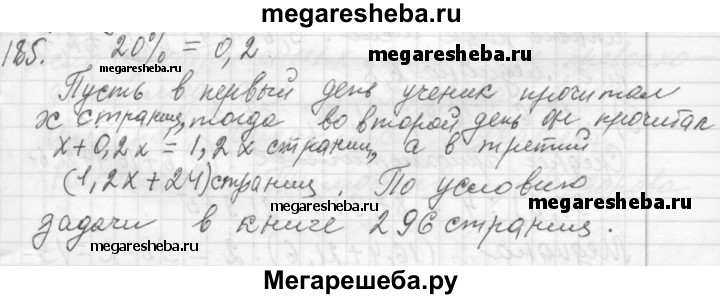 megaresheba.ru
185. 20% = 0,2.
megaresheba.ru
megaresheba.ru
Пусть в первый день ученик прочитал
x страниц, тогда во второй день он прочитал
x+0,2x = 1,2x страниц, а в третий
(1,2x+24) страниц. По условию
megaresheba.ru
задачи в книге 296 страниц.
megaresheba.ru
Мегарешеба.ру